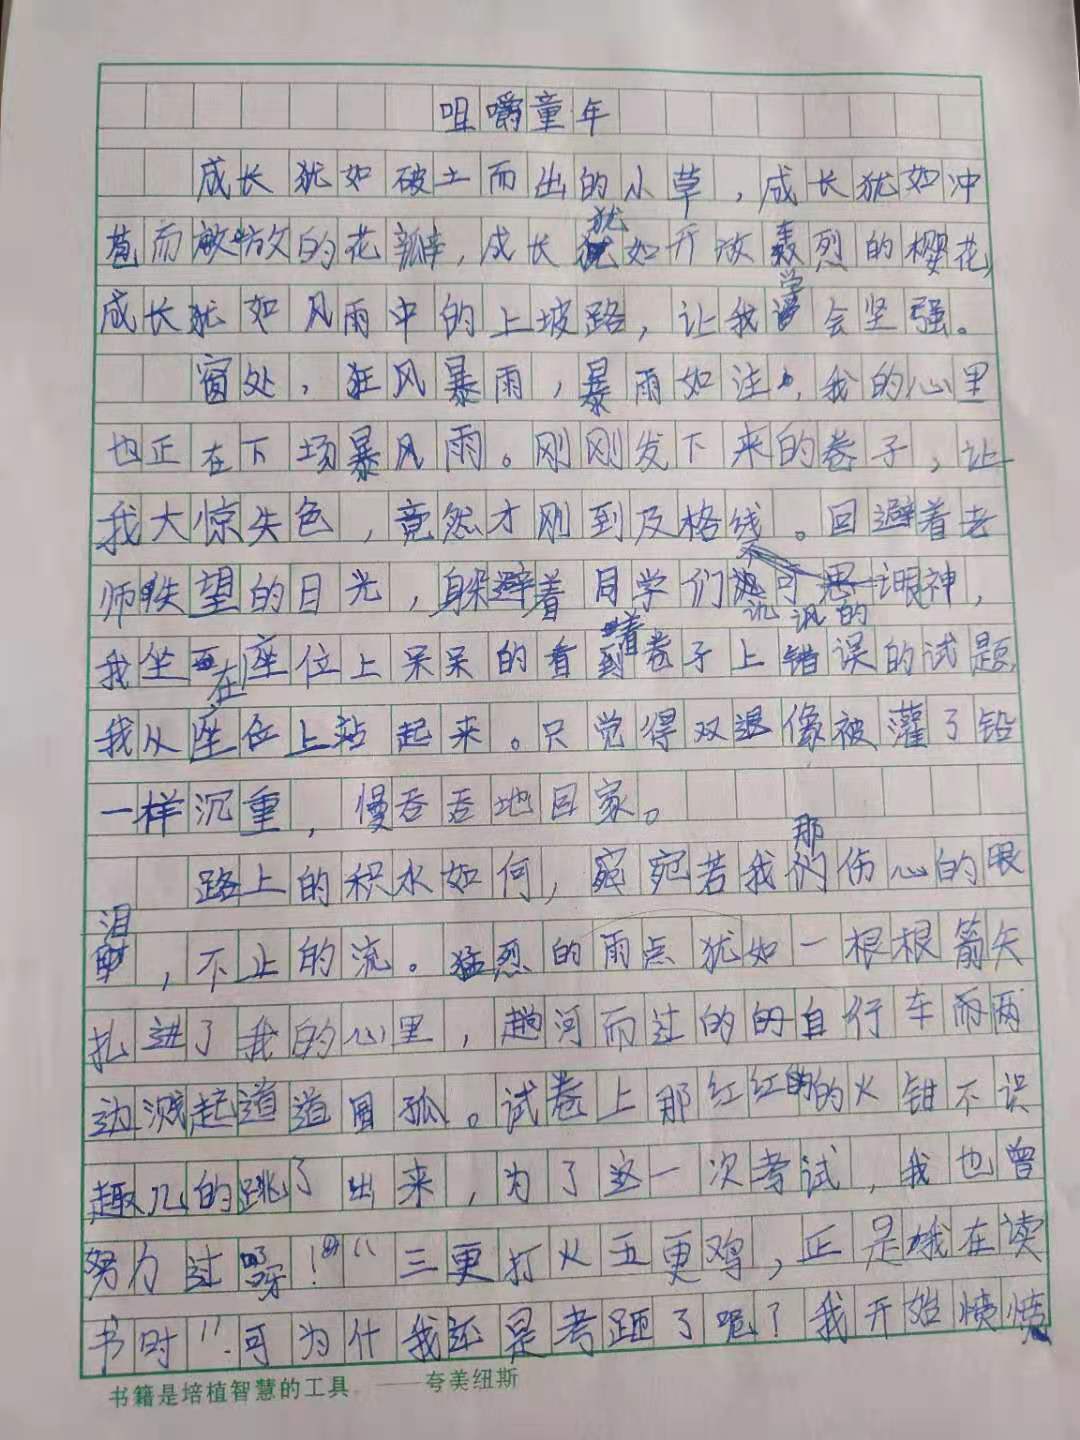 咀嚼童年
成长犹如破土而出的小草，成长犹如冲
苞而放的花瓣，成长犹如开放轰烈的樱花，
成长犹如风雨中的上坡路，让我学会坚强。
窗处，狂风暴雨，暴雨如注，我的心里
也正在下场暴风雨。刚刚发下来的卷子，让
我大惊失色，竟然才刚到及格线。回避着老
师失望的目光，躲避着同学们讥讽的眼神，
我坐在座位上呆呆的看着卷子上错误的试题
我从座位上站起来。只觉得双退像被灌了铅
一样沉重，慢吞吞地回家。
路上的积水如何，宛若我那伤心的眼
泪，不止的流。猛烈的雨点犹如一根根箭矢
扎进了我的心里，趟河而过的的自行车而两
边溅起道道弧。试卷上那红红的火钳不识
趣儿的跳了出来，为了这一次考试，我也曾
努力过呀！“三更打火五更鸡，正是娥在读
书时”.可为什我还是考砸了呢？我开始愤愤
书籍是培植智慧的工具 ——夸美纽斯